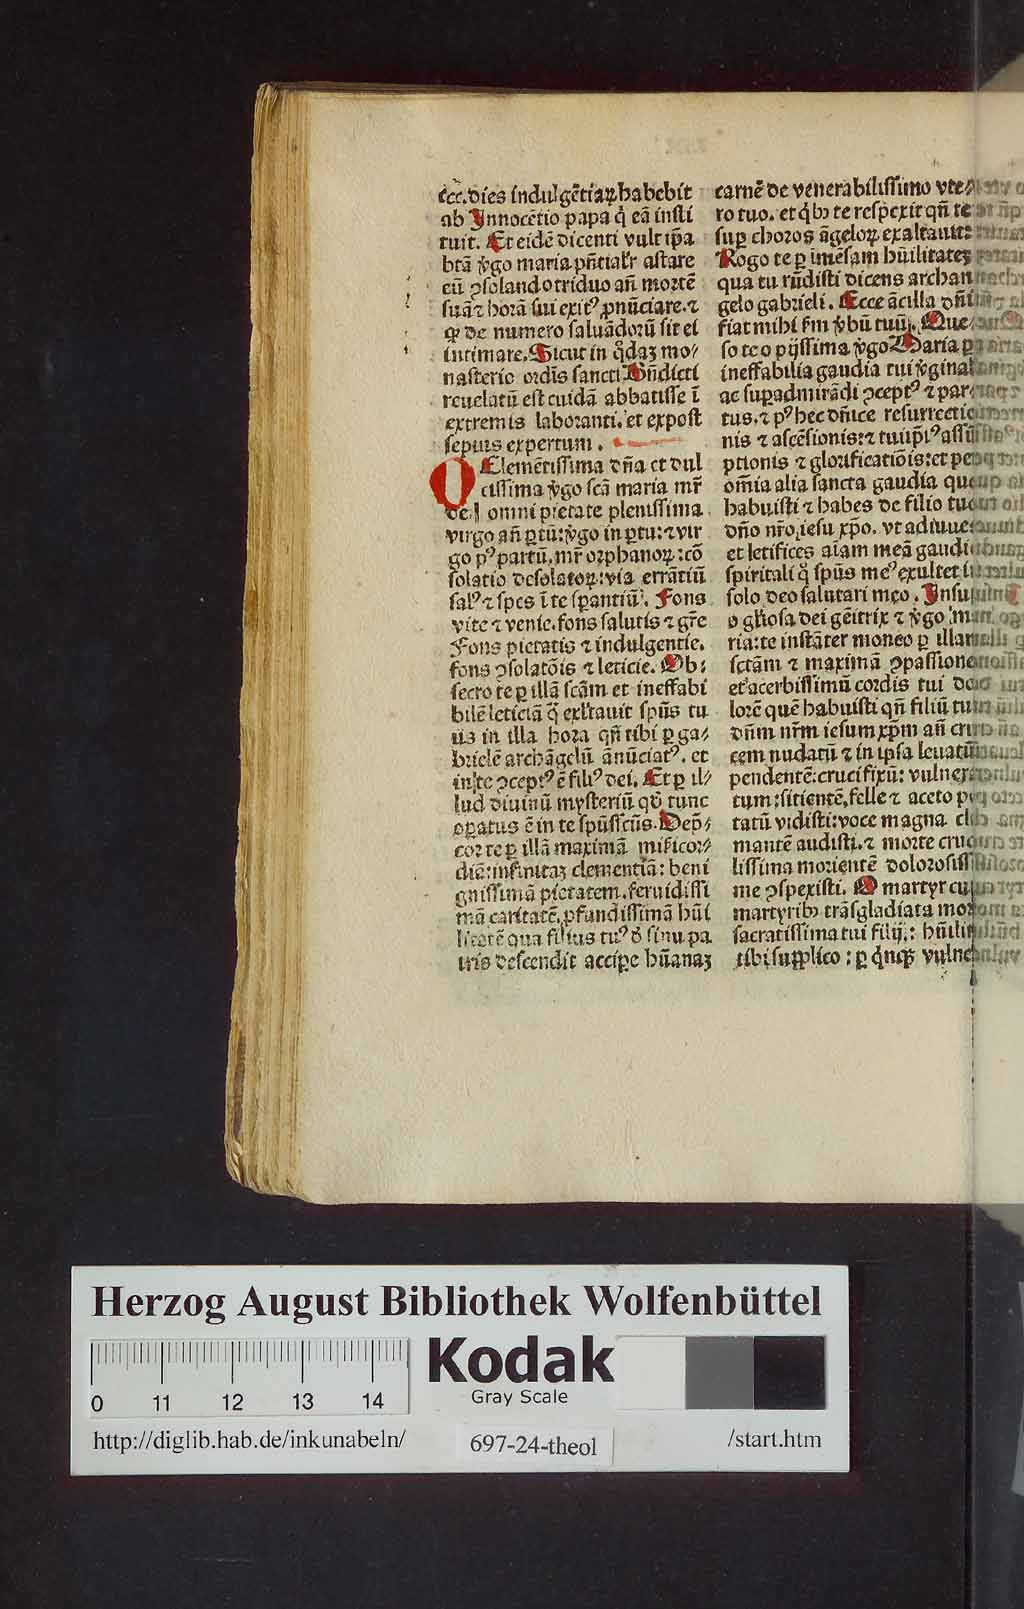 ccc. dies indulgētiaꝝ habebit
ab Innocētio papa q̇ eā insti
tuit. Et eidē dicenti vult ip̄a
btā v̇go maria p̄ntialr̄ astare
eū ꝯsolando triduo añ mortē
suā ⁊ horā sui exitꝰ p̱nūciare. ⁊
ꝙ de numero saluādorū sit ei
intimare. Sicut in q̇daꝫ mo⸗
nasterio ordīs sancti Bn̄dicti
reuelatū est cuidā abbatisse ī
extremis laboranti. et expost
sepius expertum.
O Clemētissima dn̄a et dul
cissima v̇go scā maria mr̄
dei omni pietate plenissima
virgo añ ꝑtū: v̇go in ꝑtu: ⁊ vir
go pꝰ partū. mr̄ orphanoꝝ: cō
solatio desolatoꝝ: via errātiū
salꝰ ⁊ spes ī te sperantiū. Fons
vite ⁊ venie. fons salutis ⁊ gr̄e
Fons pietatis ⁊ indulgentie.
fons ꝯsolatōis ⁊ leticie. Ob⸗
secro te ꝑ illā scām et ineffabi
bilē leticiā q̄ exl̄tauit spūs tu
us in illa hora qn̄ tibi ꝑ ga⸗
brielē archāgelū ānūciatꝰ. et
in te ꝯceptꝰ ē filiꝰ dei. Et ꝑ il⸗
lud diuinū mysteriū qđ tunc
oꝑatus ē in te spūsscūs. Dep̄⸗
cor te ꝑ illā maximā misicor⸗
diā: infinitaꝫ clementiā: beni
gnissimā pietatem. feruidissi
mā caritatē, ꝓfundissimā hūi
litatē qua filius tuꝰ đ sinu pa
tris descendit accipe hūanaꝫ
carnē de venerabilissimo vte⸗
ro tuo. et q̇bꝫ te respexit qn̄ te
suꝑ choros āgeloꝝ exaltauit:
Rogo te ꝑ īmēsam hūilitateꝫ
qua tu rn̄disti dicens archan
gelo gabrieli. Ecce ācilla dn̄i
fiat mihi s̄m v̇bū tuū. Que
so te o pijssima v̇go Maria ꝑ
ineffabilia gaudia tui v̇ginal
ac suꝑadmirādi ꝯceptꝰ ⁊ par
tus. ⁊ pꝰ hec dn̄ice resurrectio
nis ⁊ ascēsionis: ⁊ tuiip̄iꝰ assū
ptionis ⁊ glorificatiōis: et pe
om̄ia alia sancta gaudia que
habuisti ⁊ habes de filio tuo
dn̄o nr̄o iesu xp̄o. vt adiuue
et letifices aīam meā gaudi
spiritali q̊ spūs meꝰ exultet ī
solo deo salutari meo. Insu
o gl̄iosa dei gēitrix ⁊ v̇go ma
ria: te instāter moneo ꝑ illam
sctām ⁊ maximā ꝯpassione
et acerbissimū cordis tui do
lorē quē habuisti qn̄ filiū tuū
dn̄m nr̄m iesum xp̄m añ cru
cem nudatū ⁊ in ip̄sa leuatū
pendentē: crucifixū: vulnera
tum: sitientē, felle ⁊ aceto po
tatū vidisti: voce magna cla
mantē audisti. ⁊ morte cru
lissima morientē dolorosiss
me ꝯspexisti. O martyr cu
martyribꝫ trāsgladiata mor
sacratissima tui filij: hūili
tibi supplico: ꝑ q̇nqꝫ vulne
Herzog August Bibliothek Wolfenbüttel
Kodak
Gray Scale
0 11 12 13 14
http://diglib.hab.de/inkunabeln/
697-24-theol
/start.htm